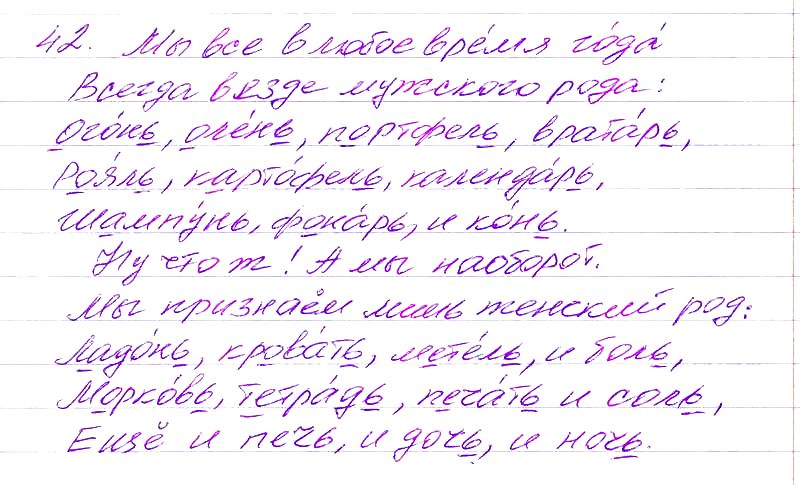 42. Мы все в любое вре́мя го́да́
Всегда везде мужского рода:
Ого́нь, оле́нь, портфель, врата́рь,
Роя́ль, карто́фель, календа́рь,
Шампу́нь, фона́рь, и ко́нь.
Ну что ж! А мы наоборот.
Мы признаём лишь женский род:
Ладо́нь, крова́ть, мете́ль, и боль,
Морко́вь, тетра́дь, печа́ть и соль,
Ещё и печь, и дочь, и ночь.